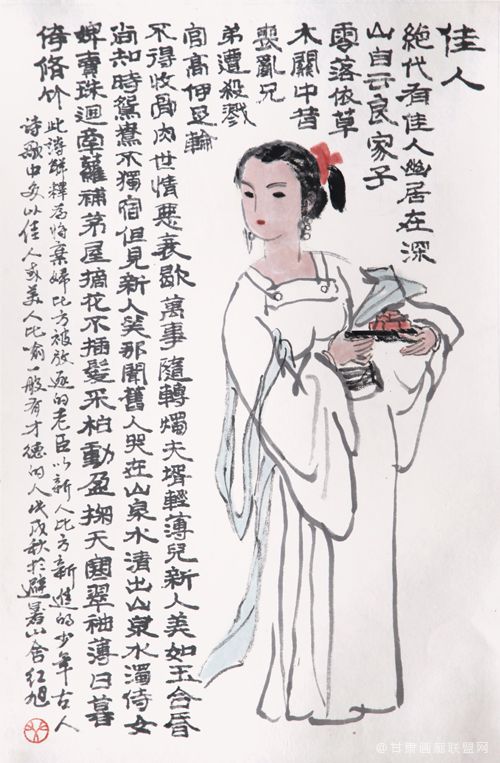 佳人
絕代有佳人幽居在深
山自云良家子
零落依草
木關中昔
喪亂兄
弟遭殺戮
官高何足輪
不得收骨肉世情惡衰歇萬事隨轉燭夫壻輕薄兒新人美如玉合昏
尚知時鴛鴦不獨宿但見新人笑那聞舊人哭在山泉水清出山泉水濁侍女
婢賣珠迴牽蘿補茅屋摘花不插髮采柏動盈掬天寒翠袖薄日暮
倚脩竹
此詩解釋為棄婦比方被放逐的老臣以新人比方新進的少年古人
詩歌中多以佳人或美人比喻一般有才德的人戊戌秋於避暑山舍紅旭
@甘肃画廊联盟网